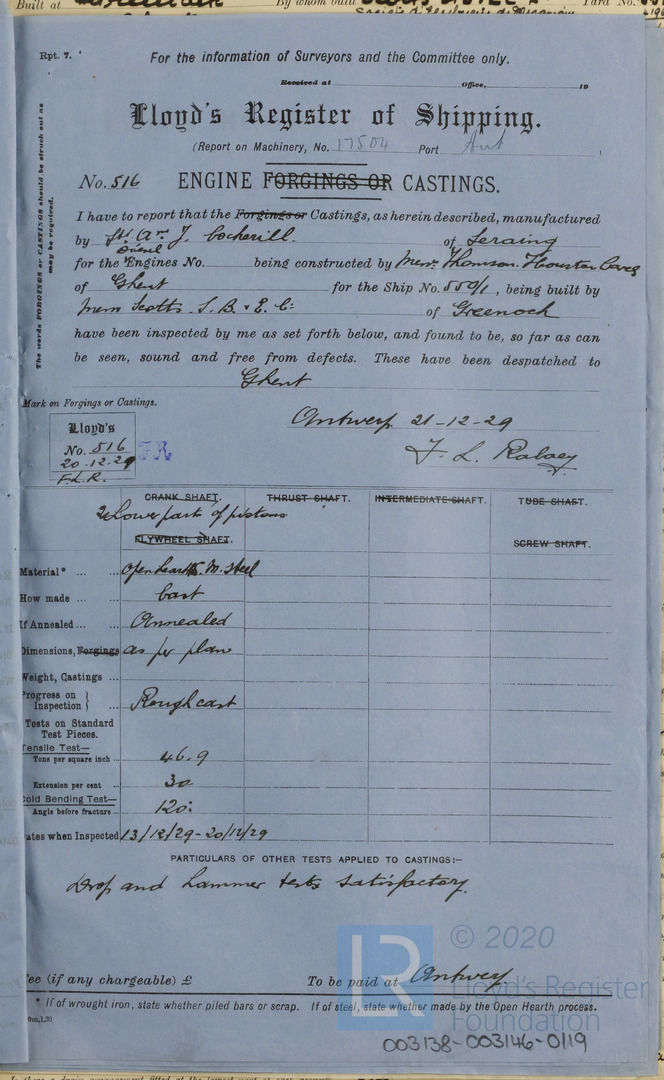 Built at By whom built Yard No.
Rpt. 7.
For the information of Surveyors and the Committee only.
Received at Office, 19
Lloyd's Register of Shipping.
(Report on Machinery, No. 17504 Port Ant )
The words FORGINGS or CASTINGS should be struck out as
may be required.
No. 516 ENGINE FORGINGS OR CASTINGS.
I have to report that the Forgings or Castings, as herein described, manufactured
by J. Cockerill of Seraing
Diesel
for the Engines No. being constructed by Messrs Thomson Houston
of Ghent for the Ship No. 550/1, being built by
Messrs Scotts S. B. & E. Co of Greenock
have been inspected by me as set forth below, and found to be, so far as can
be seen, sound and free from defects. These have been despatched to
Ghent
Mark on Forgings or Castings.
Antwerp 21-12-29
Lloyd's
No. 516
20.12.29
F.L.R.
FR
F. L. Rabaey
CRANK SHAFT. THRUST SHAFT. INTERMEDIATE SHAFT. TUBE SHAFT.
Lower part of pistons
FLYWHEEL SHAFT. SCREW SHAFT.
Material* ... ... Open hearth S. M. Steel
How made ... ... Cast
If Annealed ... ... Annealed
Dimensions, Forgings as per plan
Weight, Castings ...
Progress on
Inspection ... Rough cast
Tests on Standard
Test Pieces.
Tensile Test—
Tons per square inch ... 46.9
Extension per cent ... 30
Cold Bending Test—
Angle before fracture... 120°
Dates when Inspected 13/12/29-20/12/29
PARTICULARS OF OTHER TESTS APPLIED TO CASTINGS:—
Drop and hammer tests satisfactory.
Fee (if any chargeable) £ To be paid at Antwerp
* If of wrought iron, state whether piled bars or scrap. If of steel, state whether made by the Open Hearth process.
0m,1,30.
LR
© 2020
Lloyd's Register
Foundation
003138-003146-0119